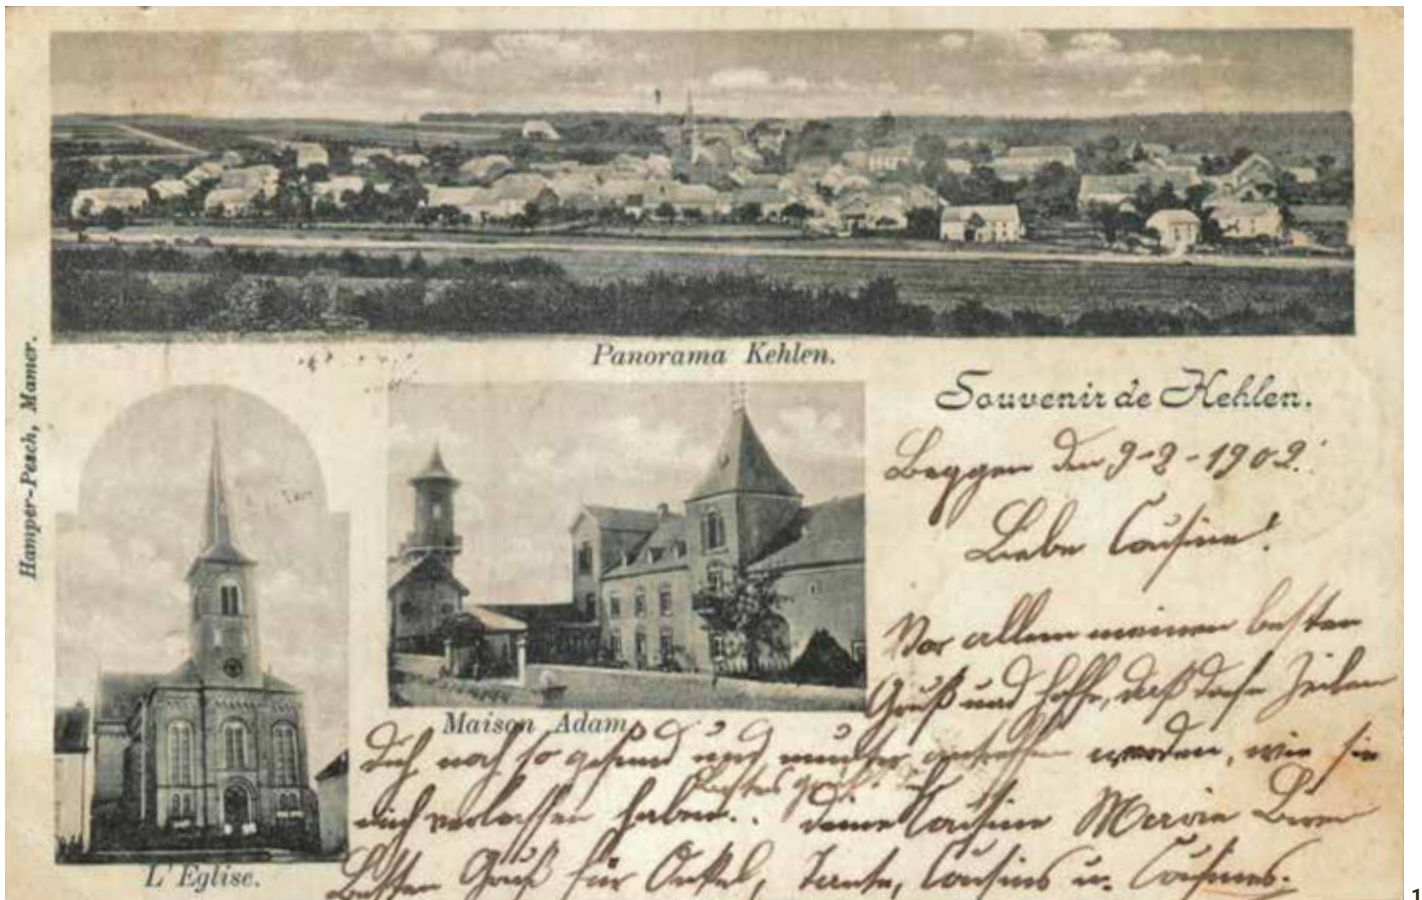 Hamper-Pesch, Mamer.
Panorama Kehlen.
Souvenir de Kehlen.
Beggen den 9-2-1902.
Liebe Cousine!
Vor allem meinen besten
Gruß und hoffe, daß diese Zeilen
Maison Adam.
dich noch so gesund und munter antreffen werden, wie sie
mich verlassen haben.. deine Cousine Marie
L'Eglise.
Besten Gruß für Onkel, Tante, Cousins u. Cousines.
1